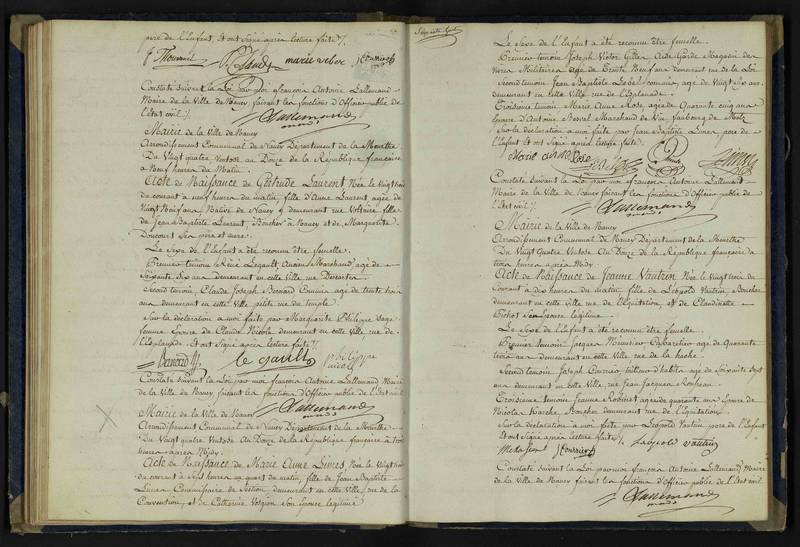 père de l'Enfant, et ont signé après lecture faite ./.
marie
Constaté suivant la Loi par moi françois Antoine Lallemand
Maire de la Ville de Nancy, faisant les fonctions d'Officier public de
l'état civil ./.
Lallemand
Mairie de la Ville de Nancy
Arrondissement Communal de Nancy Département de la Meurthe
Du Vingt quatre Ventose au Douze de la République française
à Neuf heures du Matin.
Acte de Naissance de Gertrude Laurent Née le Vingt trois
du courant à neuf heures du matin, fille d'Anne Laurent agée de
Vingt Neuf ans Native de Nancy y demeurant rue Voltaire, fille
de Jean Baptiste Laurent, Boucher à Nancy et de Marguerite
Doucourt Ses père et mere.
Le Sexe de l'Enfant a été reconnu être femelle.
Premier temoin Legault, Ancien Marchand, agé de
Soixante Six ans demeurant en cette Ville rue Descartes
Second temoin, Claude Joseph Bernard Commis agé de trente trois
ans demeurant en cette Ville petite rue du temple
Sur la déclaration à moi faite par Marguerite Philippe Sage
femme Epouse de Claude Nicole demeurant en cette Ville rue de
l'Esplanade. Et ont Signé après lecture faite ./.
Bernard le Gault philippe
Constaté suivant la Loi, par moi françois Antoine Lallemand Maire
de la Ville de Nancy, faisant les fonctions d'Officier public de l'état civil
Lallemand
Mairie de la Ville de Nancy
Arrondissement Communal de Nancy Département de la Meurthe
Du Vingt quatre Ventose Au Douze de la République française à trois
heures après Midy.
Acte de Naissance de Marie Anne Limes Née le Vingt trois
du courant à heures un quart du matin, fille de Jean Baptiste
Limes Commissaire de Section, demeurant en cette Ville, rue de la
Convention, et de Catherine son Epouse légitime
Le Sexe de l'Enfant a été reconnu être femelle.
Premier temoin Joseph Victor Gillet Garde Magasin des
Militaires agé de Trente Neuf ans demeurant rue de la Loi
Second temoin Jean Baptiste agé de Vingt Six ans
demeurant en cette Ville rue de l'Esplanade.
Troisieme temoin Marie Anne Rose, agée de Quarante cinq ans
Epouse d'Antoine Marchand de Vin, faubourg de Metz
Sur la déclaration à moi faite par Jean Baptiste Limes, père de
l'Enfant et ont Signé après lecture faite.
Marie anne Rose Limes
Constaté suivant la Loi par moi françois Antoine Lallemand
Maire de la Ville de Nancy faisant les fonctions d'Officier public de
l'Etat civil ./.
Lallemand
Mairie de la Ville de Nancy
Arrondissement Communal de Nancy Département de la Meurthe
Du Vingt Quatre Ventose Au Douze de la République française à
trois heures après Midy.
Acte de Naissance de Jeanne Vautrin Née le Vingt trois du
Courant à dix heures du matin, fille de Léopold Vautrin, Boucher
demeurant en cette Ville rue de l'Equitation, et de Claudinette
Son Epouse légitime
Le Sexe de l'Enfant a été reconnu être femelle.
Premier temoin Jacques Cabaretier agé de Quarante
trois ans demeurant en cette Ville rue de la hache.
Second temoin Joseph tailleur d'habits agé de Soixante Sept
ans demeurant en cette Ville, rue Jean Jacques Rousseau.
Troisieme temoin Jeanne Robinet agée de quarante ans Epouse de
Nicolas Boucher demeurant rue de l'Equitation
Sur la déclaration à moi faite par Léopold Vautrin père de l'Enfant
Et ont Signé après lecture faite ./. Leopold Vautrin
Constaté suivant la Loi par moi françois Antoine Lallemand Maire
de la Ville de Nancy faisant les fonctions d'Officier public de l'Etat civil
Lallemand